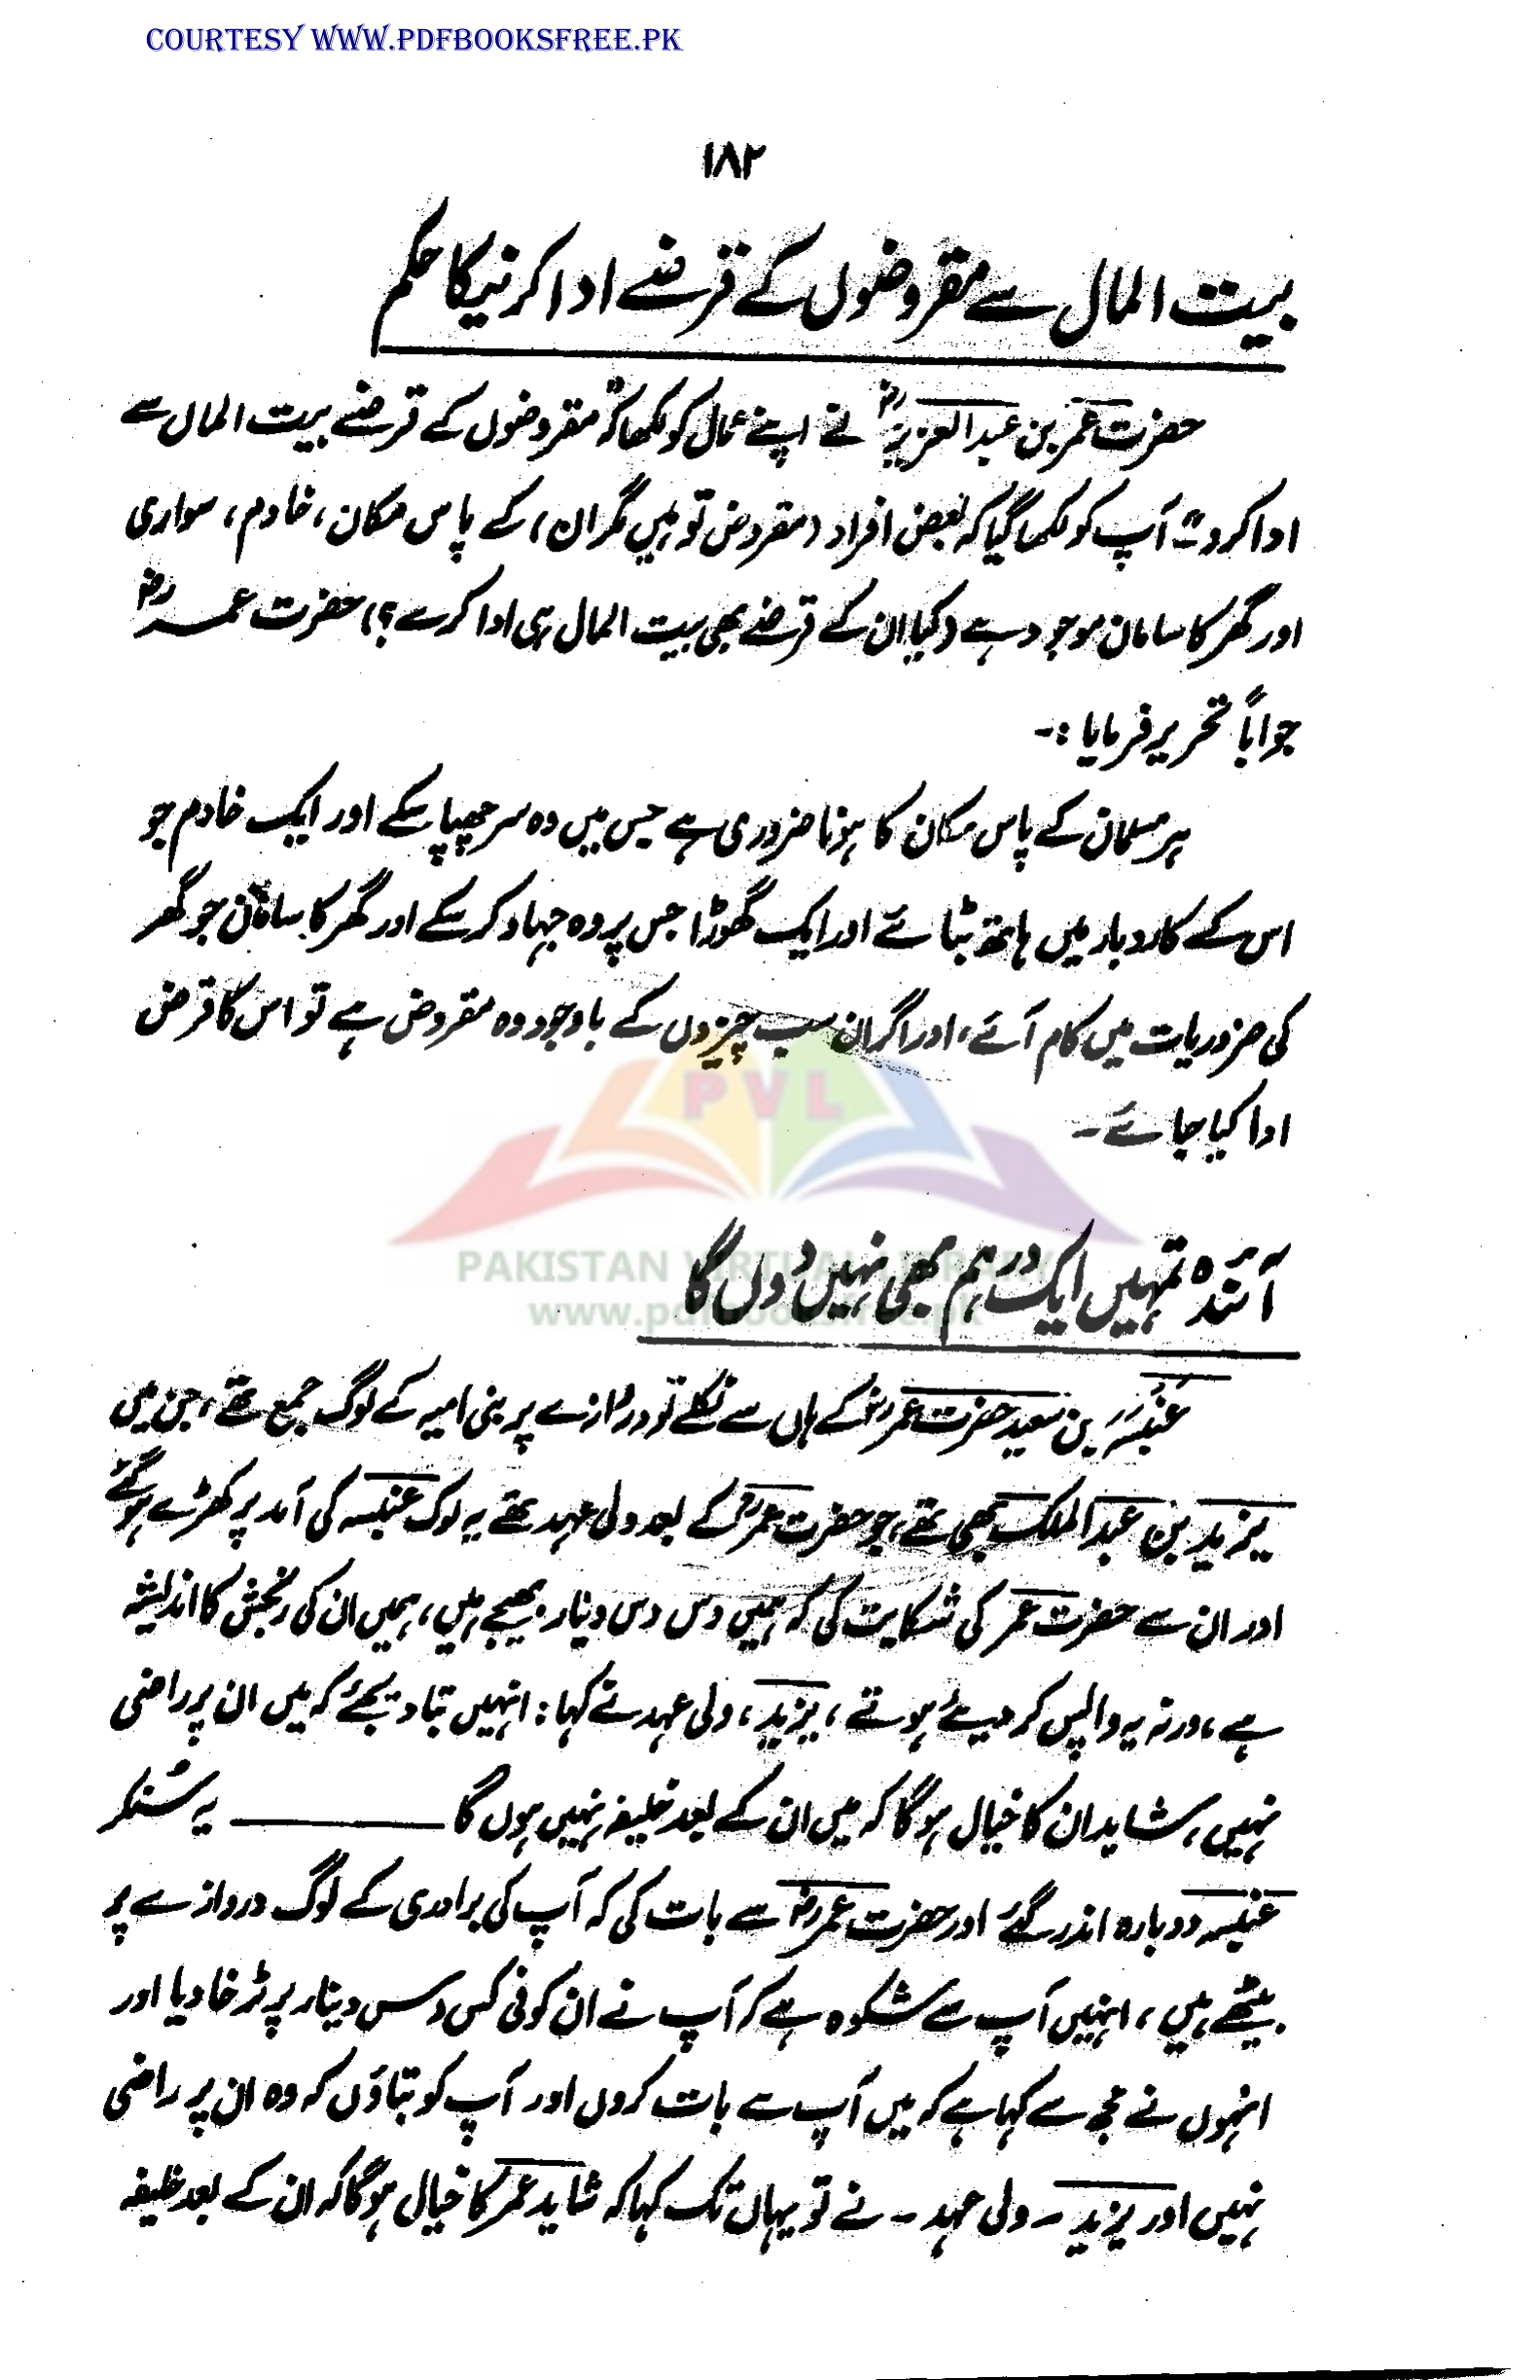 COURTESY WWW.PDFBOOKSFREE.PK
۱۸۲
بیت المال سے مقروضوں کے قرضے ادا کرنیکا حکم
حضرت عمر بن عبدالعزیزؓ نے اپنے عمال کو لکھا کہ "مقروضوں کے قرضے بیت المال سے
ادا کرو"۔ آپ کو لکھا گیا کہ بعض افراد (مقروض تو ہیں مگر ان) کے پاس مکان، خادم، سواری
اور گھر کا سامان موجود ہے (کیا ان کے قرضے بھی بیت المال ہی ادا کرے؟) حضرت عمرؓ
جواباً تحریر فرمایا :-
ہر مسلمان کے پاس مکان کا ہونا ضروری ہے جس میں وہ سر چھپا سکے اور ایک خادم جو
اس کے کاروبار میں ہاتھ بٹائے اور ایک گھوڑا جس پر وہ جہاد کر سکے اور گھر کا سامان جو گھر
کی ضروریات میں کام آئے، اور اگر ان سب چیزوں کے باوجود وہ مقروض ہے تو اس کا قرض
ادا کیا جائے۔
PVL
PAKISTAN VIRTUAL LIBRARY
www.pdfbooksfree.pk
آئندہ تمہیں ایک درہم بھی نہیں دوں گا
عَنْبَسَہ بن سعید حضرت عمرؓ کے ہاں سے نکلے تو دروازے پر بنی امیہ کے لوگ جمع تھے، جن میں
یزید بن عبدالملک بھی تھے، جو حضرت عمرؓ کے بعد ولی عہد تھے یہ لوگ عنبسہ کی آمد پر کھڑے ہو گئے
اور ان سے حضرت عمر کی شکایت کی کہ ہمیں دس دس دینار بھیجے ہیں، ہمیں ان کی رنجش کا اندیشہ
ہے، ورنہ یہ واپس کر دیئے ہوتے، یزید، ولی عہد نے کہا: انہیں بتا دیجئے کہ میں ان پر راضی
نہیں، شاید ان کا خیال ہو گا کہ میں ان کے بعد خلیفہ نہیں ہوں گا ——— یہ سُنکر
عنبسہ دوبارہ اندر گئے اور حضرت عمرؓ سے بات کی کہ آپ کی برادری کے لوگ دروازے پر
بیٹھے ہیں، انہیں آپ سے شکوہ ہے کہ آپ نے ان کو فی کس دس دینار پر ٹرخا دیا اور
انہوں نے مجھ سے کہا ہے کہ میں آپ سے بات کروں اور آپ کو بتاؤں کہ وہ ان پر راضی
نہیں اور یزید - ولی عہد - نے تو یہاں تک کہا کہ شاید عمر کا خیال ہو گا کہ ان کے بعد خلیفہ